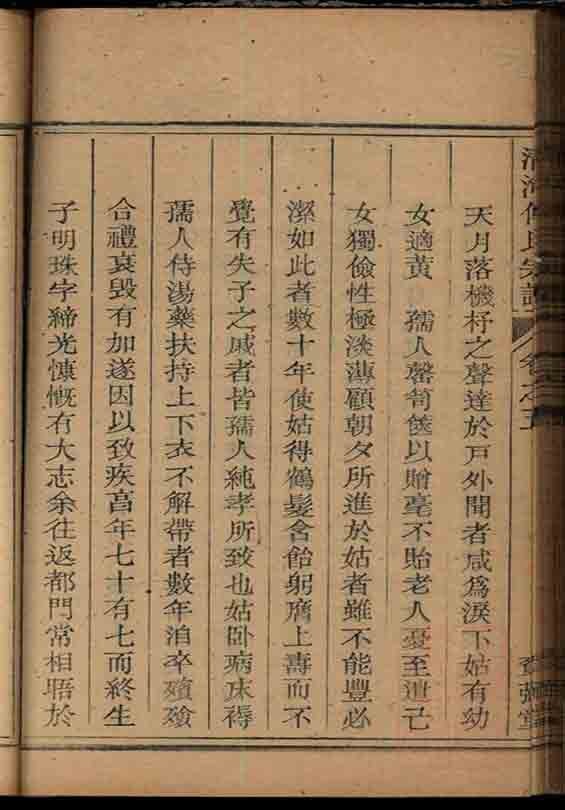 清河傅氏宗譜
卷之五
天月落機杼之聲達於戶外聞者咸爲淚下姑有幼
女適黃 孺人罄笥篋以贈毫不貽老人憂至遣己
女獨儉性極淡薄顧朝夕所進於姑者雖不能豐必
潔如此者數十年使姑得鶴髮含飴躬膺上壽而不
覺有失子之戚者皆孺人純孝所致也姑卧病床褥
孺人侍湯藥扶持上下衣不解帶者數年洎卒殯殮
合禮哀毀有加遂因以致疾亯年七十有七而終生
子明珠字締光慷慨有大志余往返都門常相晤於